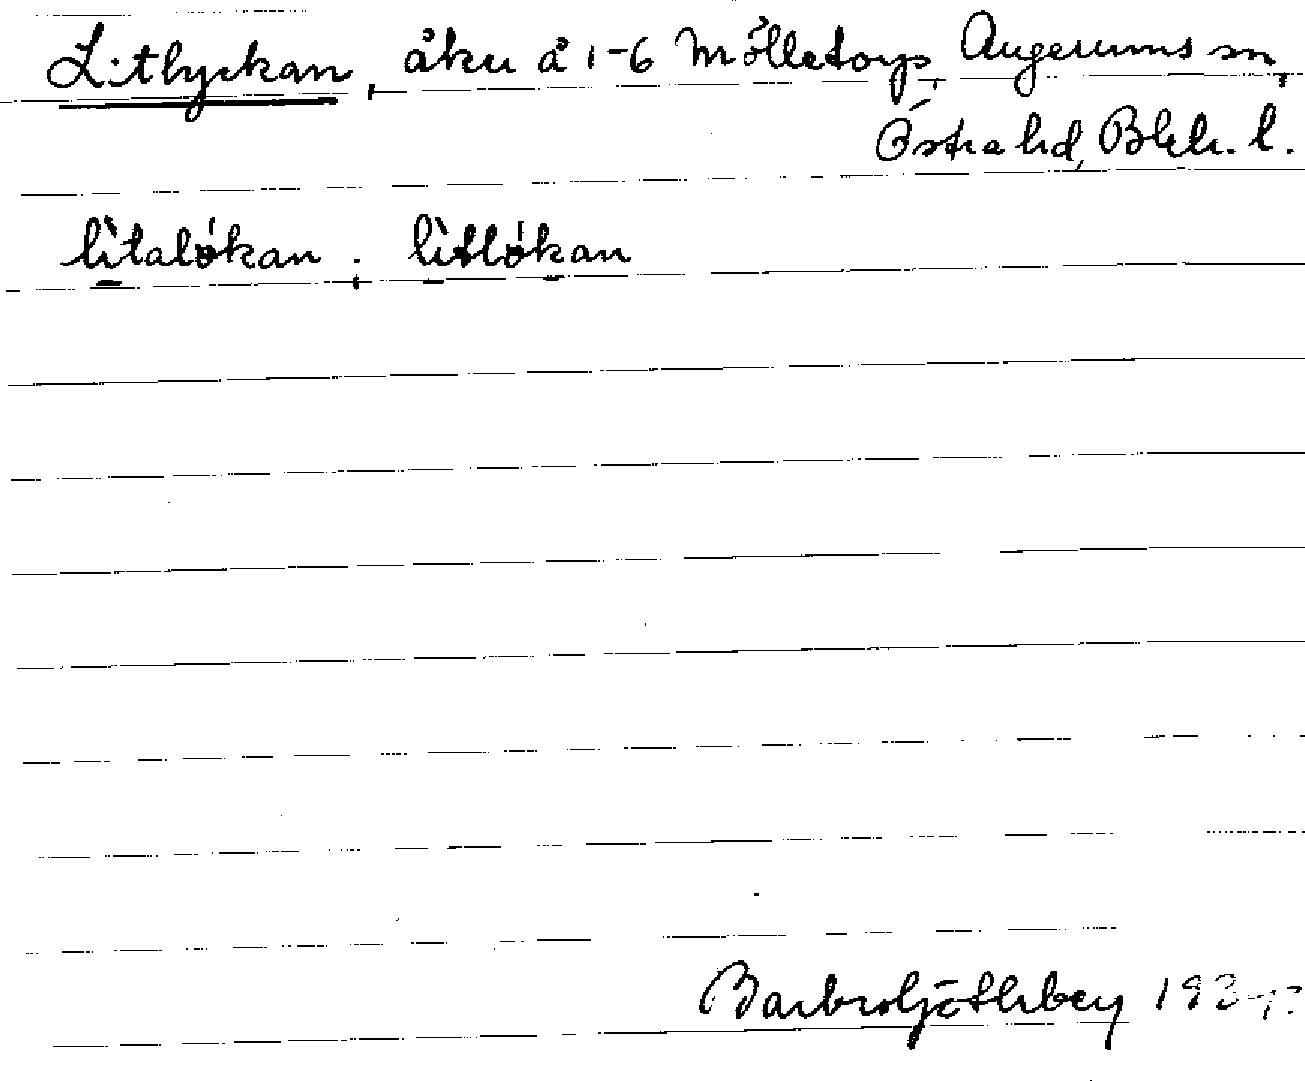 Litlyckan, åker å 1-6 Mölletorp, Augerums sn,
Östra hd, Blek. l.
lìtaló̤kan. lìtló̤kan
Barbro Söderberg